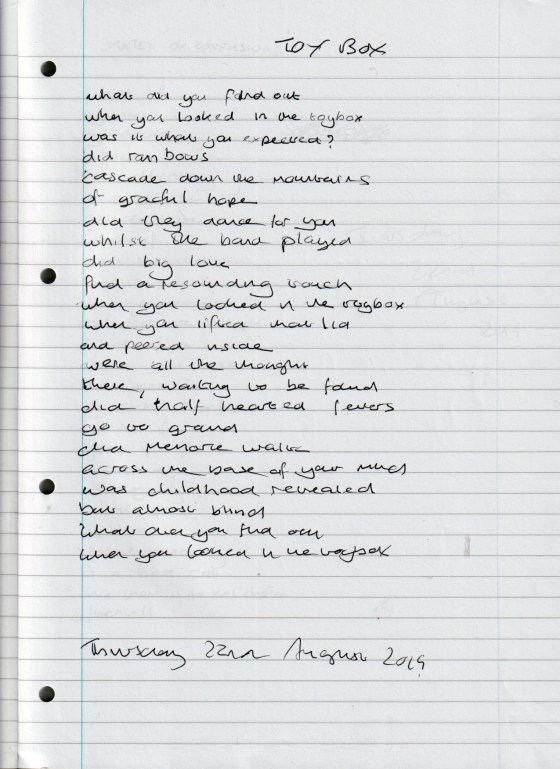 TOY BOX
what did you find out
when you looked in the toybox
was it what you expected?
did rainbows
cascade down the mountains
of graceful hope
did they dance for you
whilst the band played
did big love
find a resounding touch
when you looked in the toybox
when you lifted that lid
and peered inside
were all the thoughts
there, waiting to be found
did half hearted fevers
go to ground
did memorie walk
across the base of your mind
was childhood revealed
but almost blind
what did you find out
when you looked in the toybox
Thursday 22nd August 2019